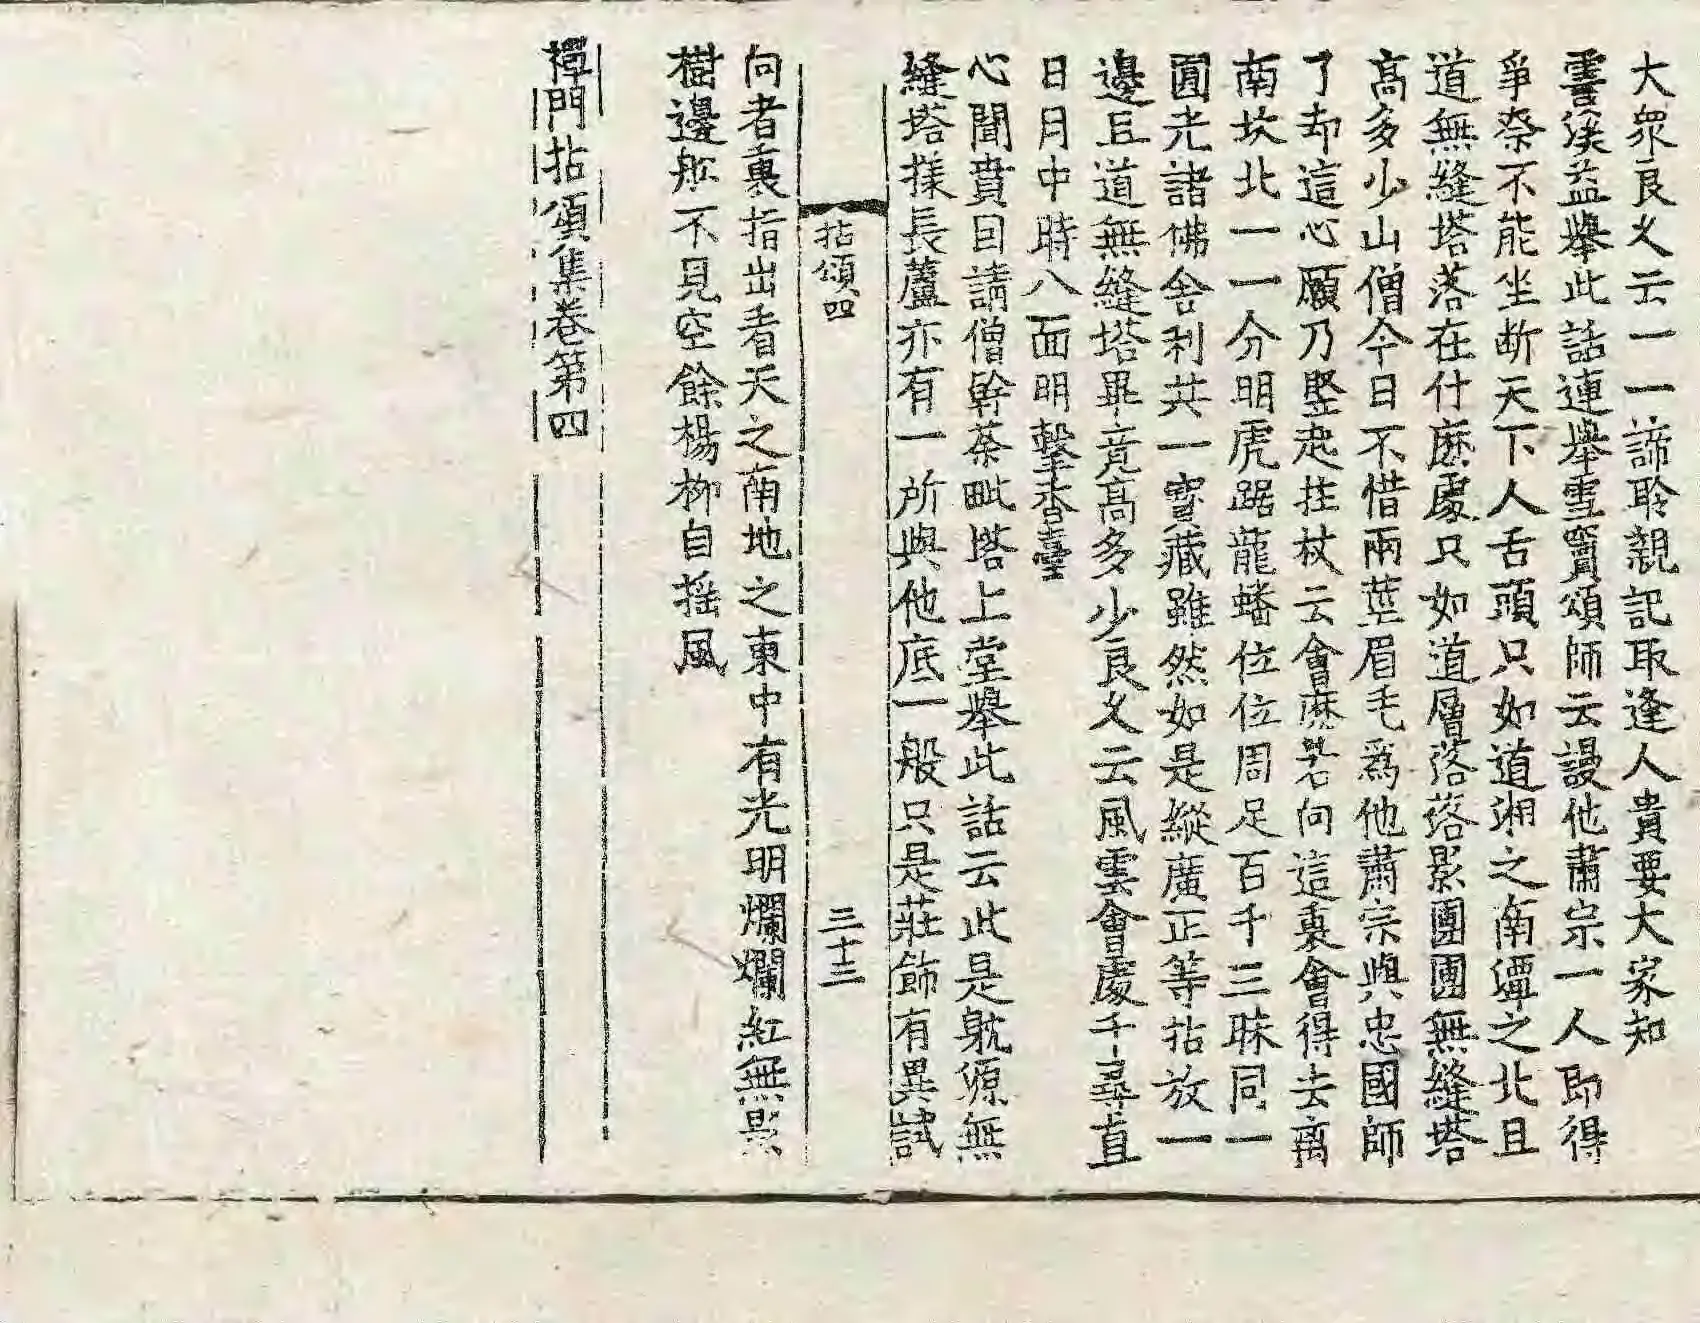 大衆良久云一一諦聆親記取逢人貴要大家知
雲溪益擧此話連擧雪竇頌師云謾他肅宗一人即得
爭柰不能坐断天下人舌頭只如道湘之南潭之北且
道無縫塔落在什麽處只如道層落落影團團無縫塔
高多少山僧今日不惜兩莖眉毛爲他肅宗與忠國師
了却這心願乃竪起拄杖云會麽若向這裏會得去离
南坎北一一分明虎踞龍蟠位位周足百千三昧同一
圓光諸佛舍利共一寶藏雖然如是縱廣正等拈放一
邊且道無縫塔畢竟高多少良久云風雲會處千尋直
日月中時八面明擊香臺
心聞賁回請僧幹茶毗塔上堂擧此話云此是躭源無
縫塔㨾長蘆亦有一所與他底一般只是莊飾有異試
拈頌四 三十三
向者裏指出看天之南地之東中有光明爛爛紅無影
樹邊舡不見空餘楊柳自摇風
禪門拈頌集卷第四